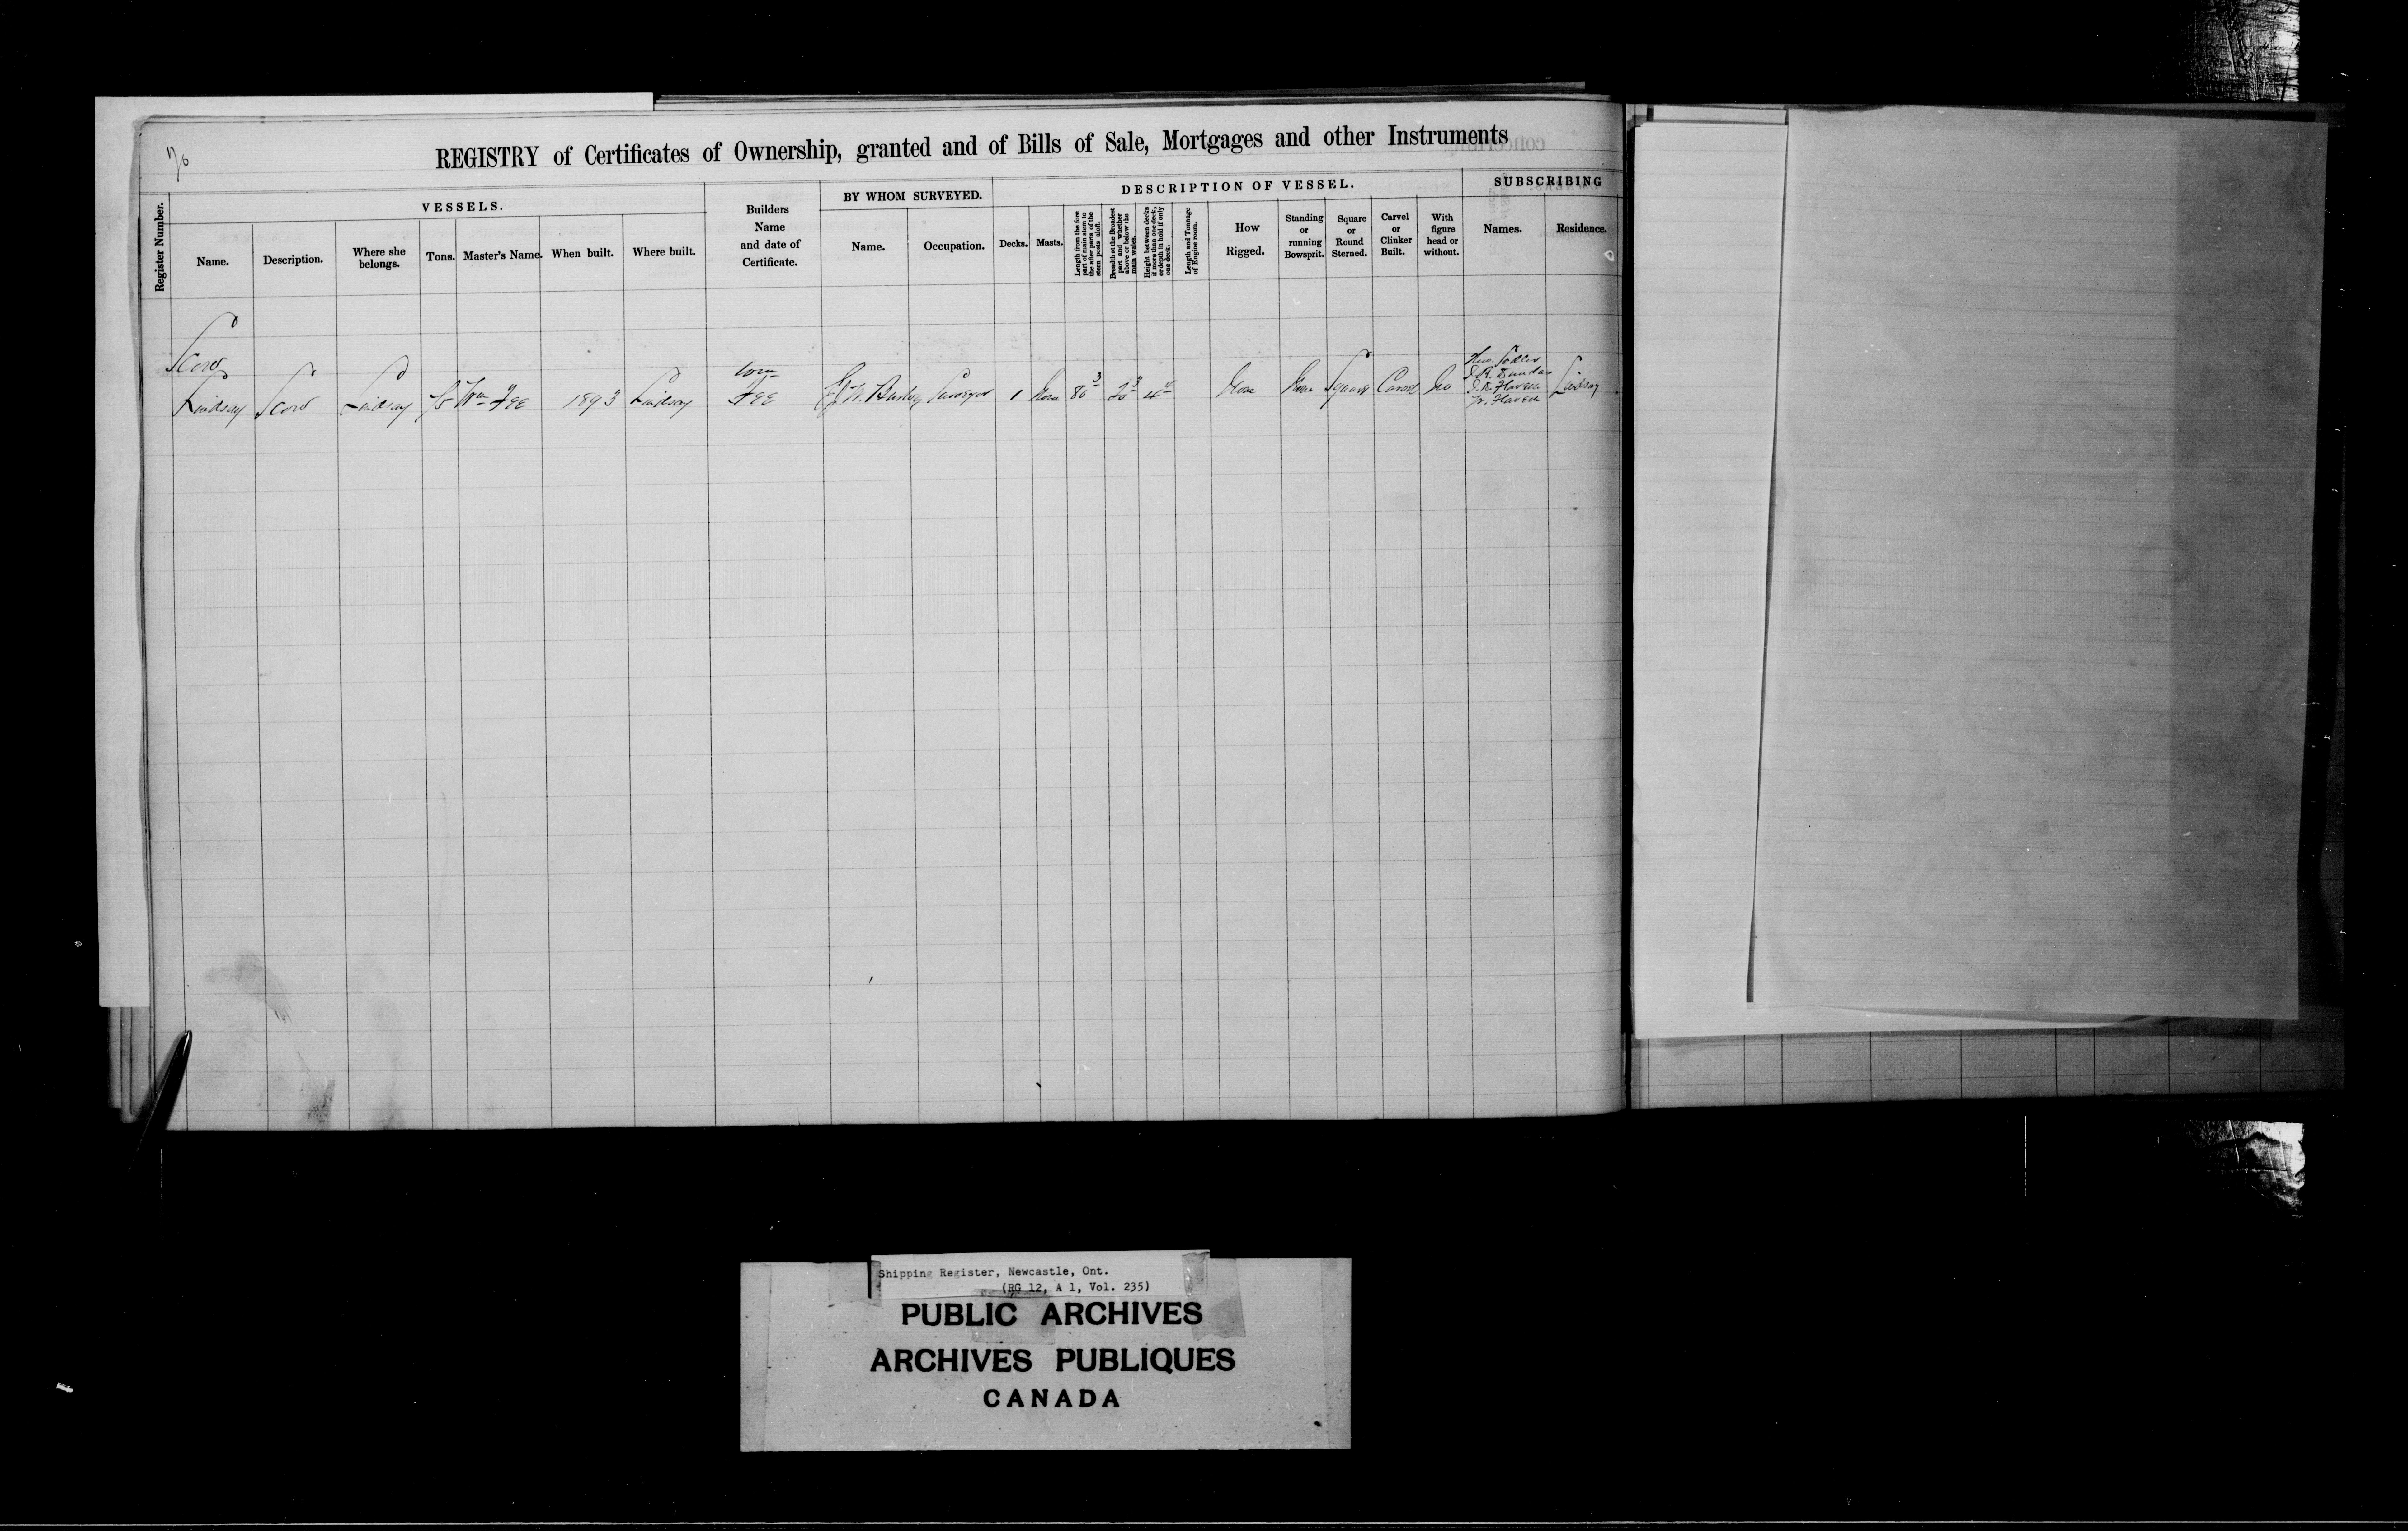 REGISTRY of Certificates of Ownership, granted and of Bills of Sale, Mortgages and other Instruments
Register Number.
VESSELS.
Name.
Description.
Where she belongs.
Tons.
Master's Name.
When built.
Where built.
Builders Name and date of Certificate.
BY WHOM SURVEYED.
Name.
Occupation.
DESCRIPTION OF VESSEL.
Decks.
Masts.
Length from the fore part of main stem to the after parts of the stern posts aloft.
Breadth at the Broadest part and whether above or below the main wales.
Height between decks if more than one deck, or depth in hold if only one deck.
Length and Tonnage of Engine room.
How Rigged.
Standing or running Bowsprit.
Square or Round Sterned.
Carvel or Clinker Built.
With figure head or without.
SUBSCRIBING
Names.
Residence.
Scow
Lindsay Scow Lindsay Wm Fee 1893 Lindsay Fee Surveyor 1 None 80 3 20 4 None None Square Carvel No Lindsay
J. R. Dundas
J. R. Flavelle
W. Flavelle
Shipping Register, Newcastle, Ont.
(RG 12, A 1, Vol. 235)
PUBLIC ARCHIVES
ARCHIVES PUBLIQUES
CANADA